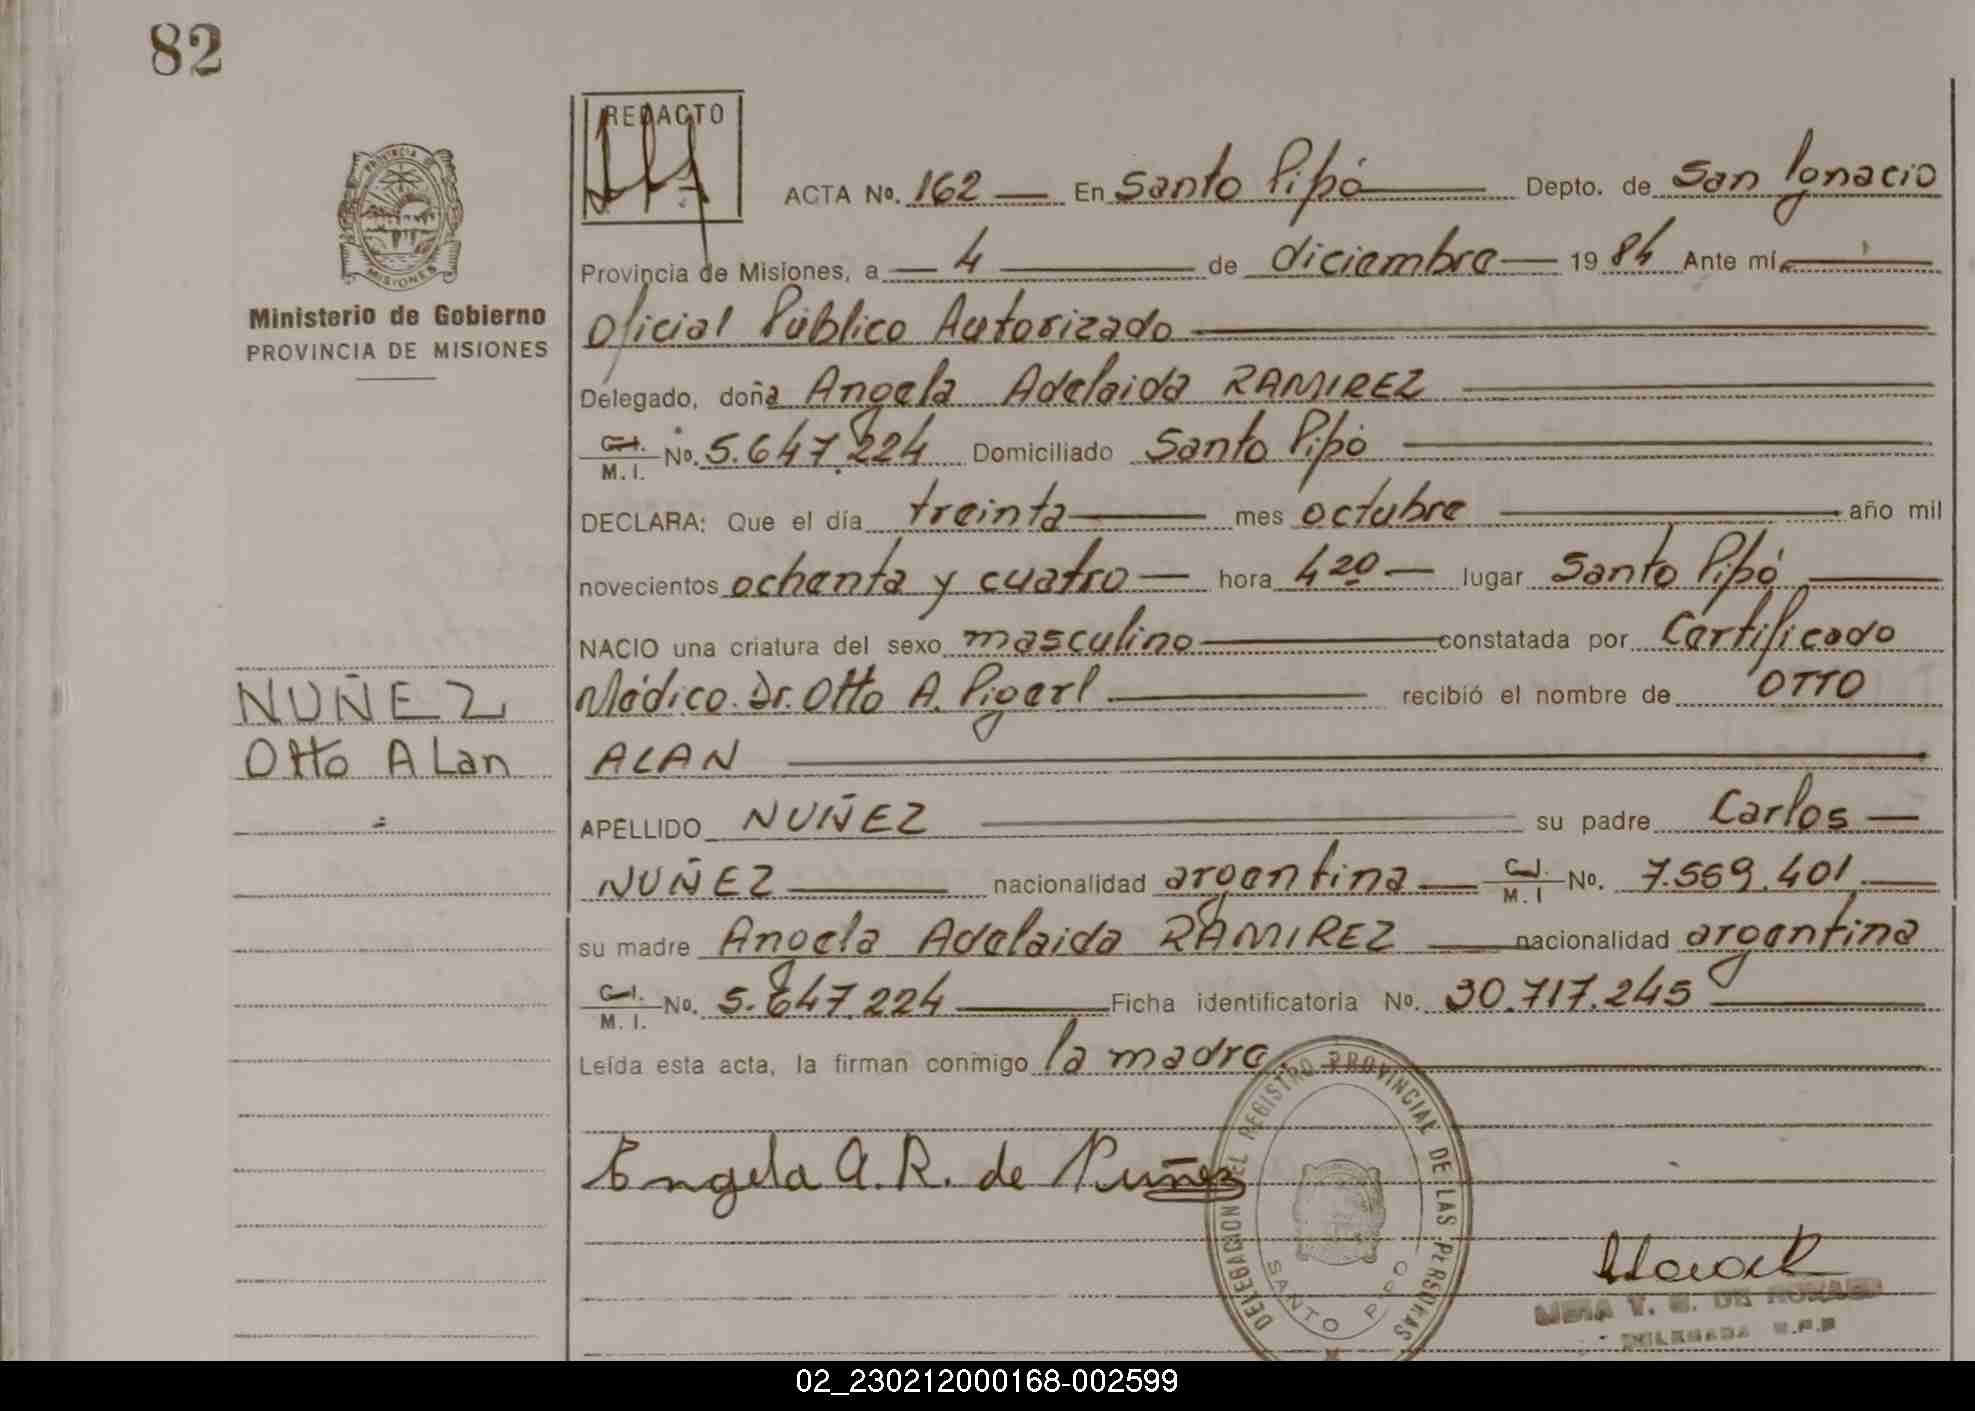 82
REDACTO
ACTA No. 162 — En Santo Pipó Depto. de San Ignacio
Provincia de Misiones, a — 4 — de diciembre — 1984 Ante mí
Oficial Público Autorizado
Delegado, doña Angela Adelaida RAMIREZ
C.I. M.I. No. 5.647.224 Domiciliado Santo Pipó
DECLARA: Que el día treinta — mes octubre — año mil
novecientos ochenta y cuatro — hora 4 20 — lugar Santo Pipó
NACIO una criatura del sexo masculino — constatada por Certificado
Médico. Dr. Otto A. Pigerl — recibió el nombre de OTTO
ALAN
APELLIDO NUÑEZ — su padre Carlos —
NUÑEZ — nacionalidad argentina — C.I. M.I No. 7.569.401.
su madre Angela Adelaida RAMIREZ — nacionalidad argentina
C.I. M.I. No. 5.647.224 — Ficha identificatoria No. 30.717.245
Leída esta acta, la firman conmigo la madre.
Engela A. R. de Nuñez
PROVINCIA DE MISIONES
Ministerio de Gobierno
PROVINCIA DE MISIONES
NUÑEZ
Otto ALan
DELEGACION DEL REGISTRO PROVINCIAL DE LAS PERSONAS
SANTO PIPO
02_230212000168-002599